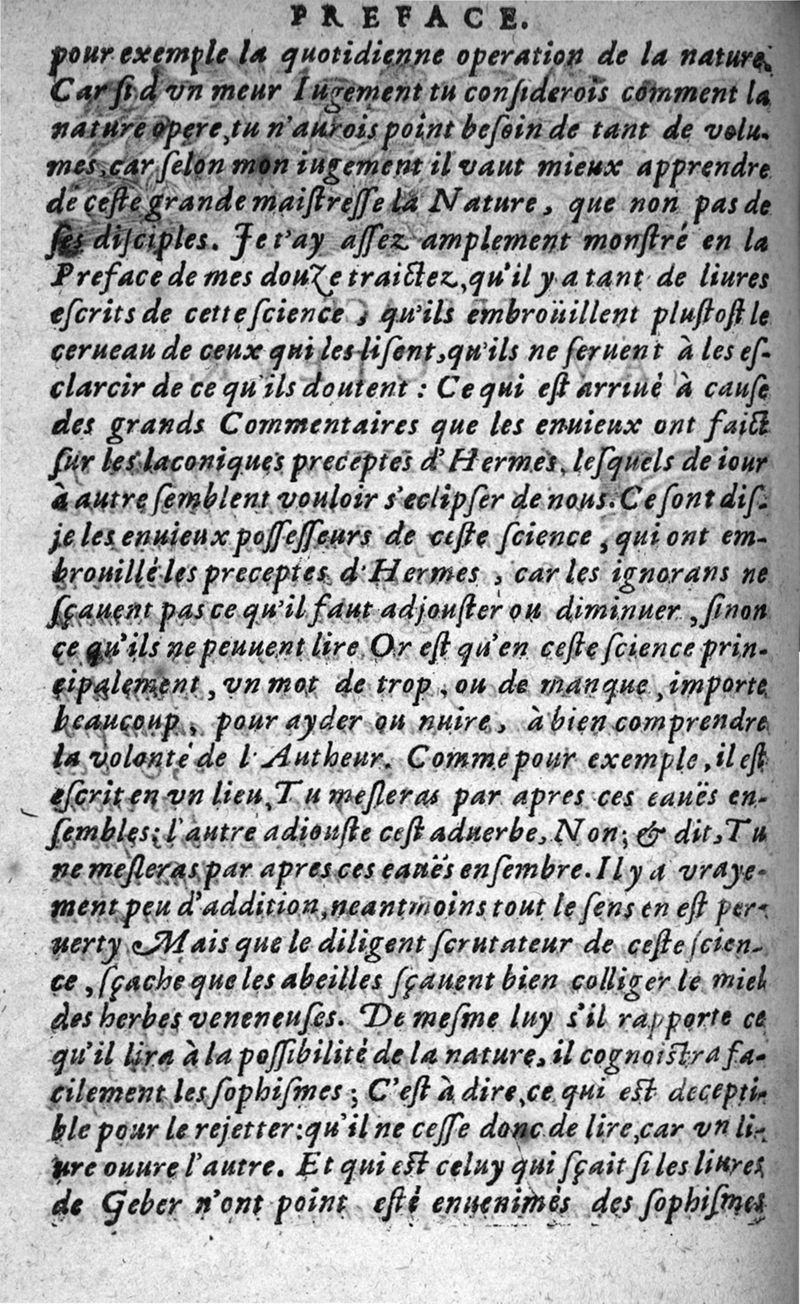 PREFACE.
pour exemple la quotidienne operation de la nature.
Car ſi d'vn meur Iugement tu conſiderois comment la
nature opere, tu n'aurois point beſoin de tant de volu-
mes, car ſelon mon iugement il vaut mieux apprendre
de ceſte grande maiſtreſſe la Nature, que non pas de
ſes diſciples. Je t'ay aſſez amplement monſtré en la
Preface de mes douze traictez, qu'il y a tant de liures
eſcrits de cette ſcience, qu'ils embroüillent pluſtoſt le
cerueau de ceux qui les liſent, qu'ils ne ſeruent à les eſ-
clarcir de ce qu'ils doutent : Ce qui eſt arriué à cauſe
des grands Commentaires que les enuieux ont faict
ſur les laconiques preceptes d'Hermes, leſquels de iour
à autre ſemblent vouloir s'eclipſer de nous. Ce ſont diſ-
je les enuieux poſſeſſeurs de ceſte ſcience, qui ont em-
brouillé les preceptes d'Hermes, car les ignorans ne
ſçauent pas ce qu'il faut adjouſter ou diminuer, ſinon
ce qu'ils ne peuuent lire Or eſt qu'en ceſte ſcience prin-
cipalement, vn mot de trop, ou de manque, importe
beaucoup, pour ayder ou nuire, à bien comprendre
la volonté de l'Autheur. Comme pour exemple, il eſt
eſcrit en vn lieu, Tu meſleras par apres ces eauës en-
ſembles; l'autre adiouſte ceſt aduerbe, Non; & dit, Tu
ne meſleras par apres ces eauës enſembre. Il y a vraye-
ment peu d'addition, neantmoins tout le ſens en eſt per-
uerty Mais que le diligent ſcrutateur de ceſte ſcien-
ce, ſçache que les abeilles ſçauent bien colliger le miel
des herbes veneneuſes. De meſme luy s'il rapporte ce
qu'il lira à la poſſibilité de la nature, il cognoiſtra fa-
cilement les ſophiſmes; C'eſt à dire, ce qui eſt decepti-
ble pour le rejetter: qu'il ne ceſſe donc de lire, car vn li-
ure ouure l'autre. Et qui eſt celuy qui ſçait ſi les liures
de Geber n'ont point eſté enuenimés des ſophiſmes